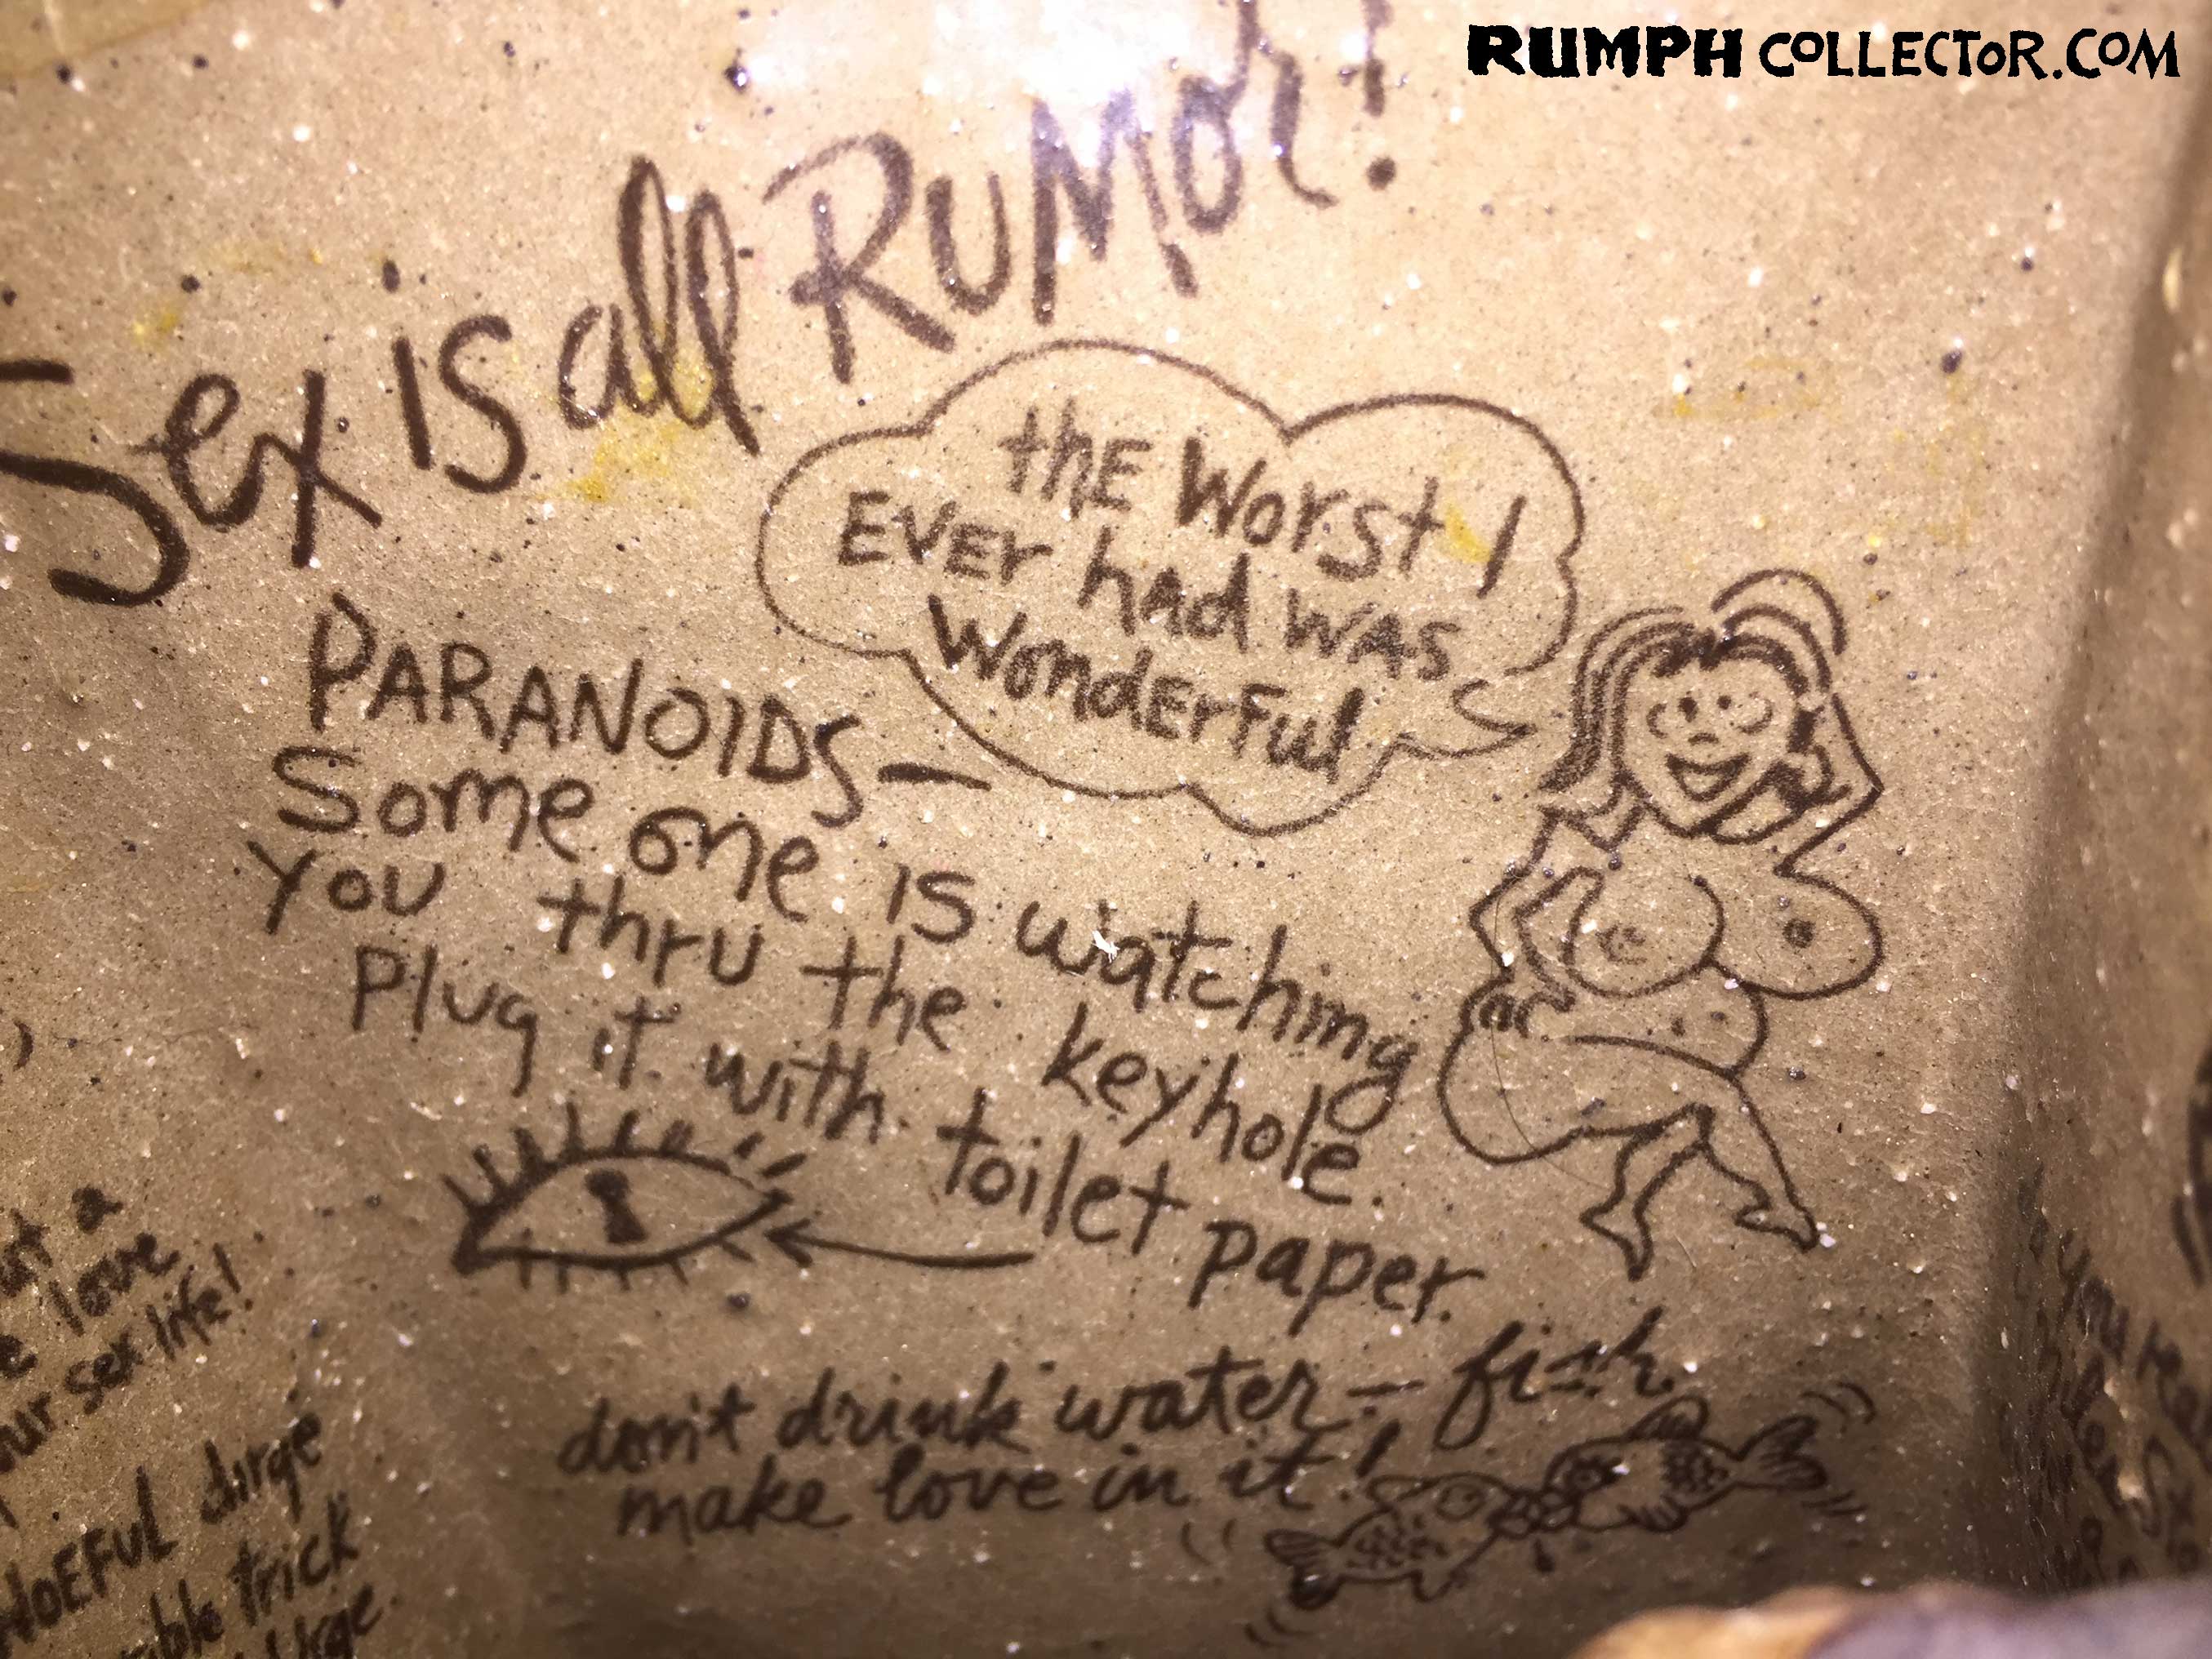 RUMPH COLLECTOR.COM
Sex is all RUMOr!
thE Worst I
EVEr hAd WAS
WondErFul
PARANOIDS—
Some one is watching
You thru the keyhole.
Plug it with toilet paper.
don't drink water — fish
make love in it!
a
love
sex life!
dirge
trick